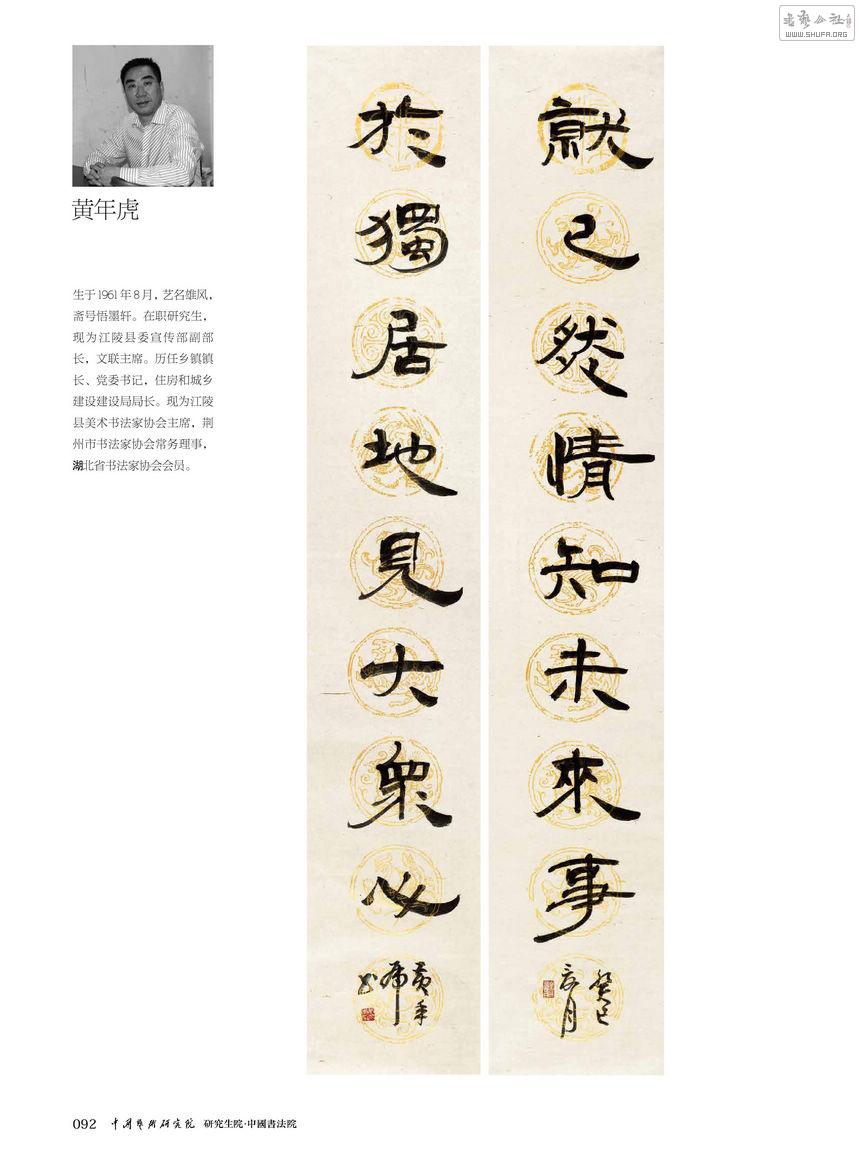 書藝公社
WWW.SHUFA.ORG
黄年虎
生于1961年8月，艺名雄风，
斋号悟墨轩。在职研究生，
现为江陵县委宣传部副部
长，文联主席。历任乡镇镇
长、党委书记，住房和城乡
建设建设局局长。现为江陵
县美术书法家协会主席，荆
州市书法家协会常务理事，
湖北省书法家协会会员。
就已然情知未來事
癸巳
亥月
於獨居地見大衆心
黄年
虎
书
092 中国艺术研究院 研究生院·中國書法院